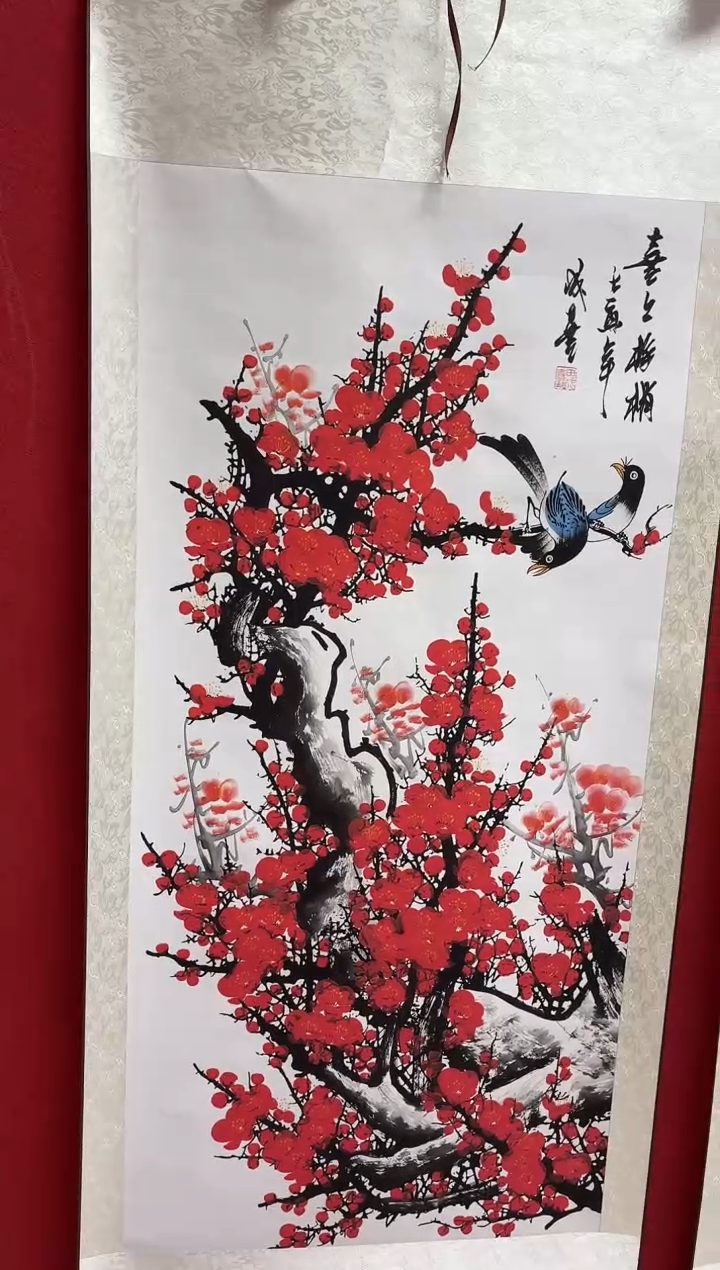 喜上梅梢
壬寅年
成美